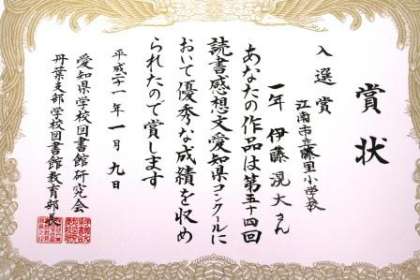 賞状
入選賞
江南市立藤里小学校
一年 伊藤滉大さん
あなたの作品は第五十四回
読書感想文愛知県コンクールに
おいて優秀な成績を収め
られたので賞します
平成二十一年一月九日
愛知県学校図書館研究会
丹葉支部学校図書館教育部長